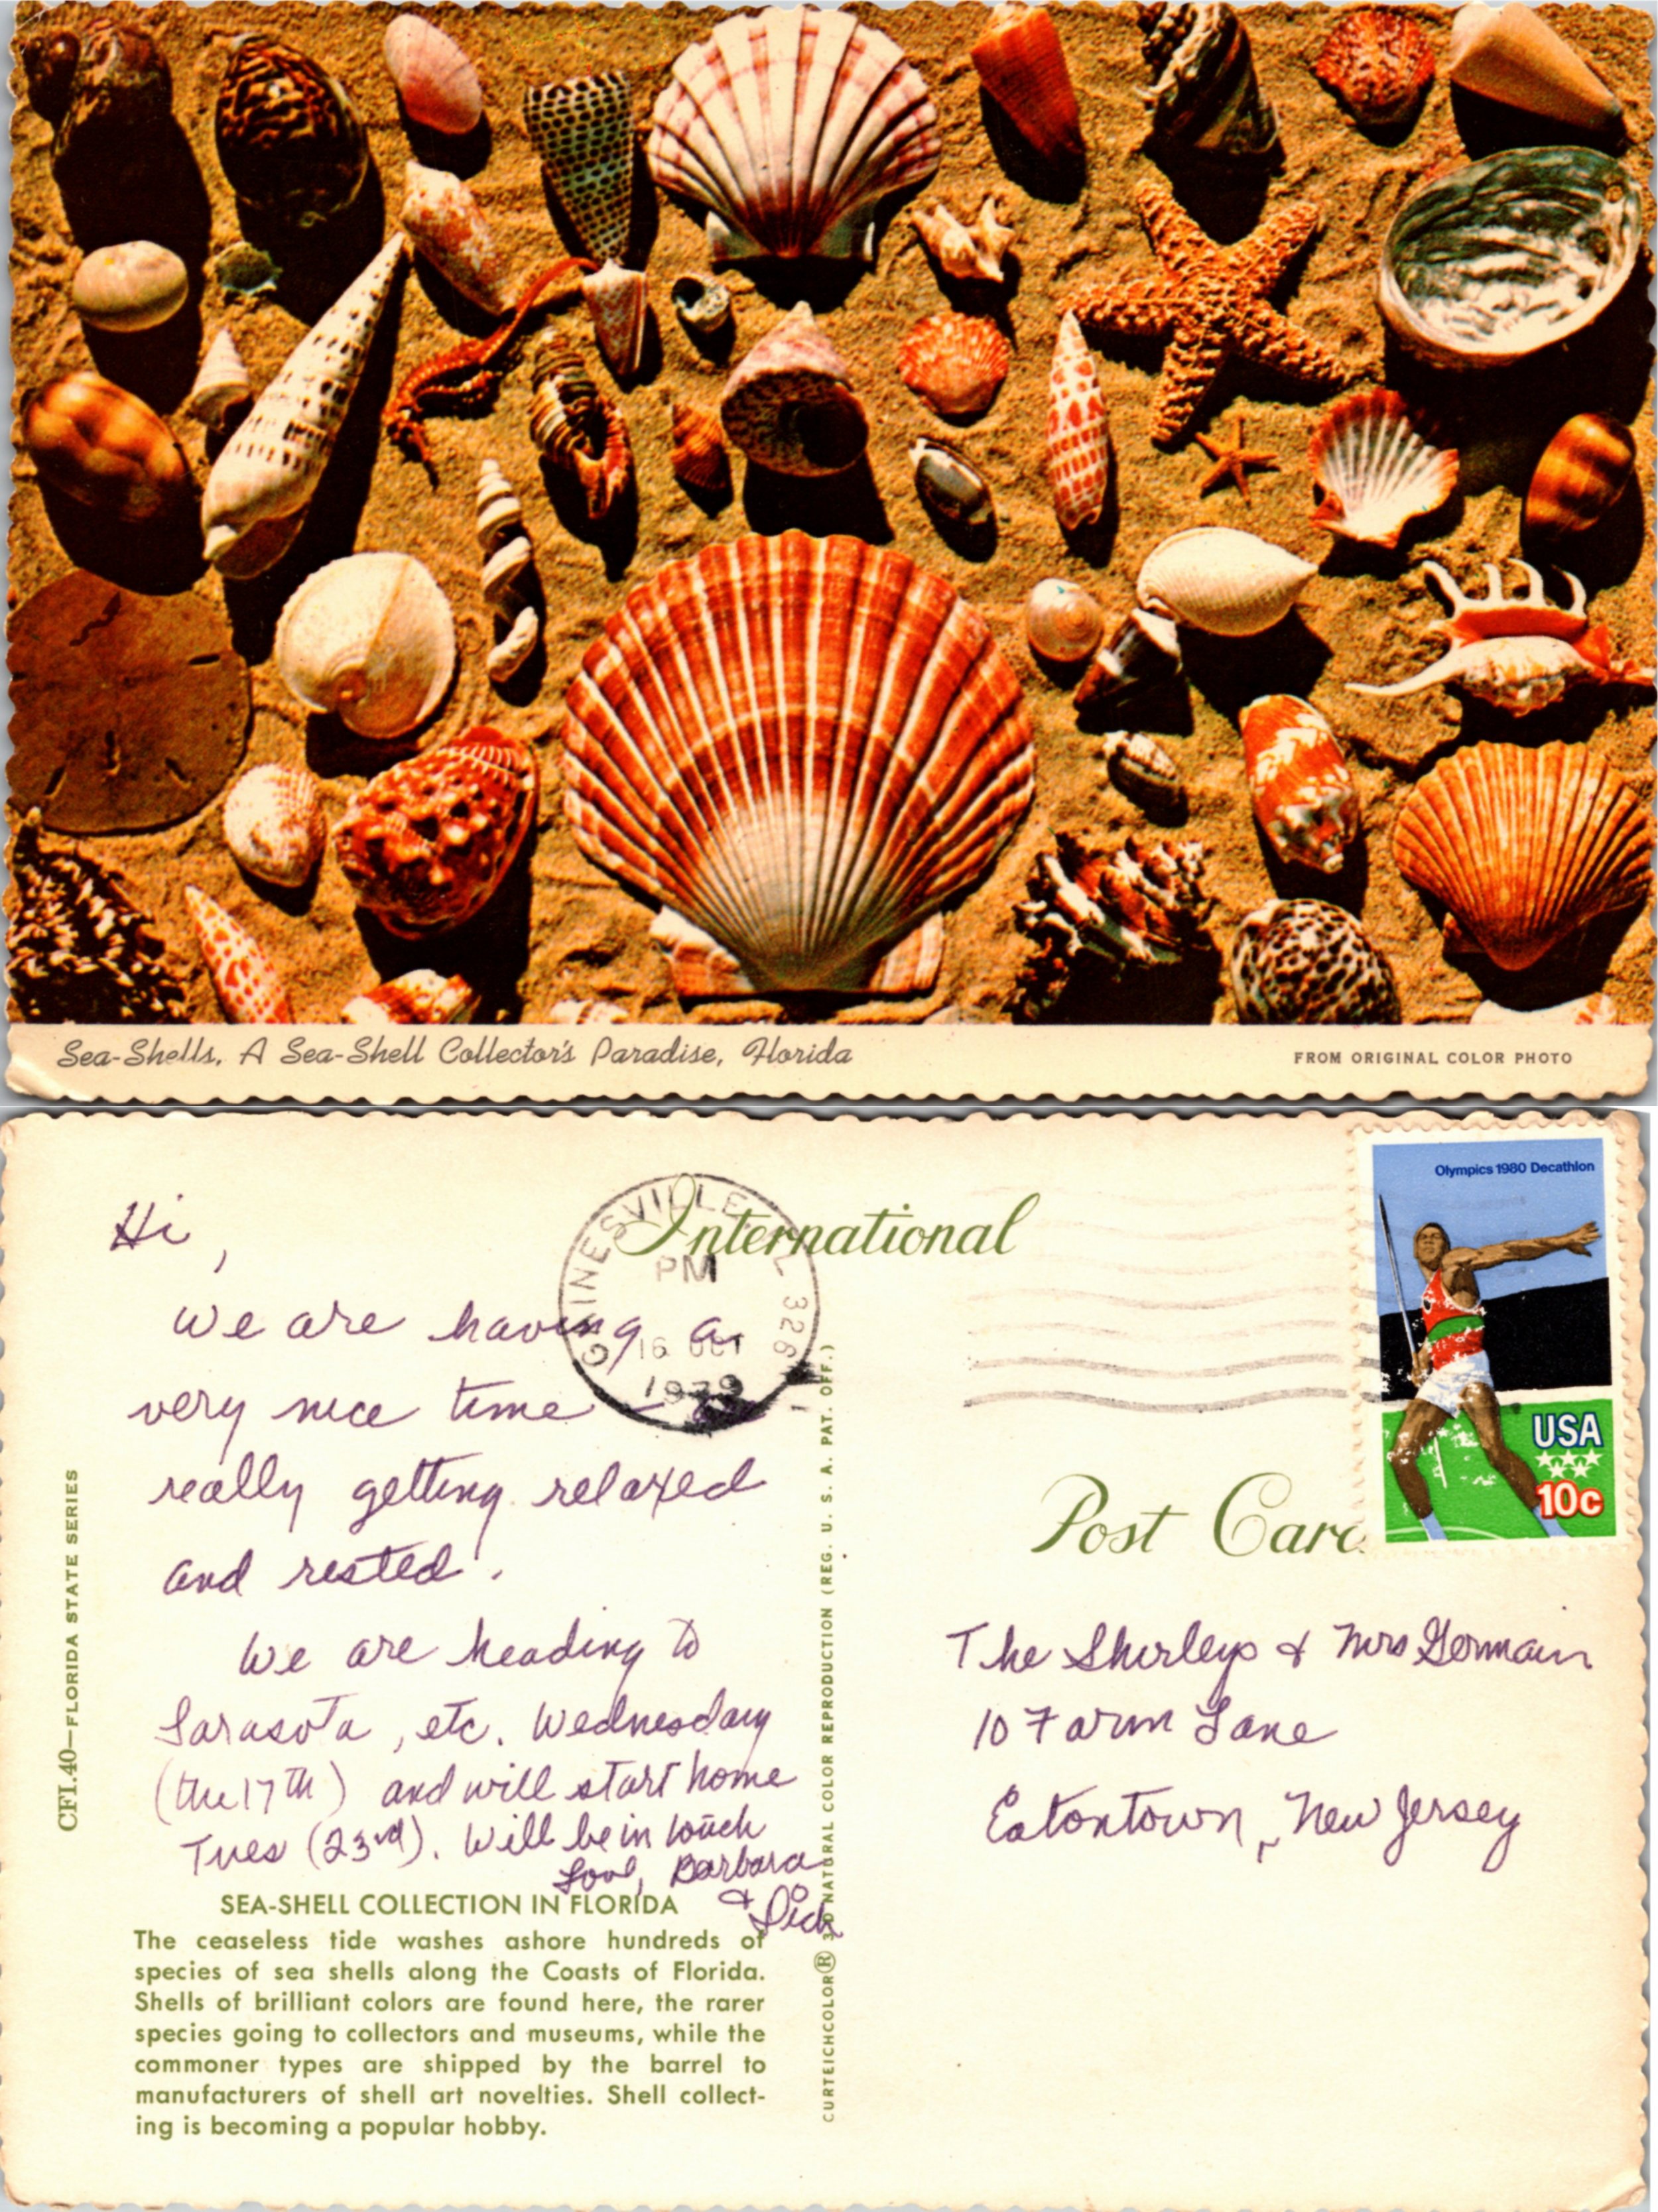 Sea-Shells, A Sea-Shell Collector's Paradise, Florida
FROM ORIGINAL COLOR PHOTO
Hi,
We are having a
very nice time –
really getting relaxed
and rested.
We are heading to
Sarasota, etc. Wednesday
(the 17th) and will start home
Tues (23rd). Will be in touch
Love, Barbara
& Dick
SEA-SHELL COLLECTION IN FLORIDA
The ceaseless tide washes ashore hundreds of
species of sea shells along the Coasts of Florida.
Shells of brilliant colors are found here, the rarer
species going to collectors and museums, while the
commoner types are shipped by the barrel to
manufacturers of shell art novelties. Shell collect-
ing is becoming a popular hobby.
CFI.40—FLORIDA STATE SERIES
GAINESVILLE, FL 326
PM
16 OCT
1979
International
Post Card
CURTEICHCOLOR® 3-D NATURAL COLOR REPRODUCTION (REG. U. S. A. PAT. OFF.)
Olympics 1980 Decathlon
USA
10c
The Shirleys & Mrs Germain
10 Farm Lane
Eatontown, New Jersey